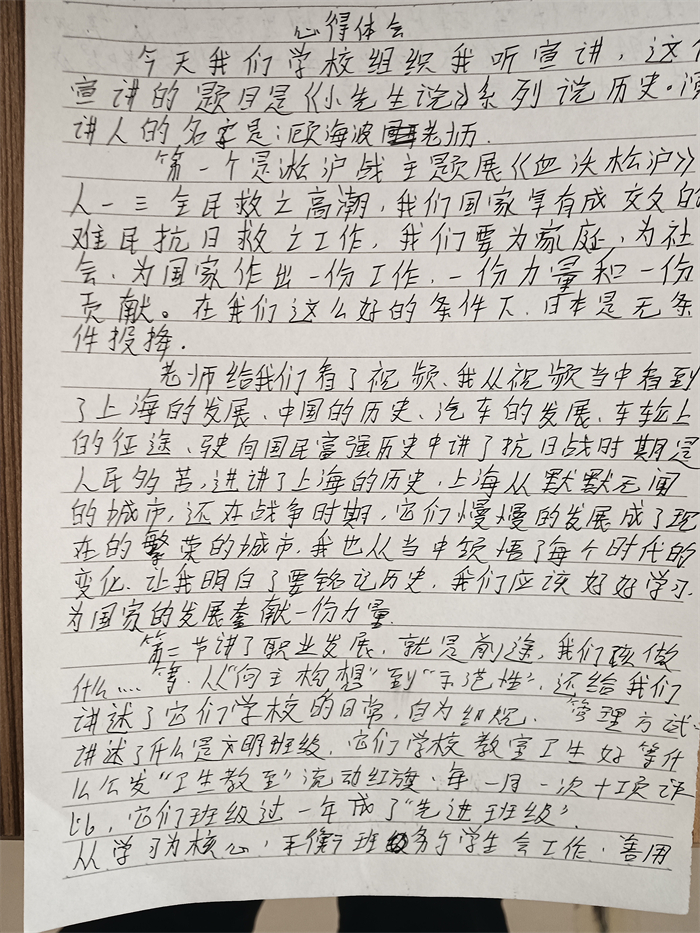 心得体会
今天我们学校组织我听宣讲，这
宣讲的题目是《小先生说》系列说历史。演
讲人的名字是：顾海波老师.
第一个是淞沪战主题展《血沃松沪》
人一三全民救亡高潮，我们国家早有成
难民抗日救亡工作，我们要为家庭，为社
会，为国家作出一份工作，一份力量和一份
贡献。在我们这么好的条件下，日本是无条
件投降.
老师给我们看了视频、我从视频当中看到
了上海的发展、中国的历史、汽车的发展、车轮上
的征途、驶向国民富强历史中讲了抗日战时期是
人民多苦，进讲了上海的历史，上海从默默无闻
的城市，还在战争时期，它们慢慢的发展成了现
在的繁荣的城市，我也从当中领悟了每个时代的
变化、让我明白了要铭记历史，我们应该好好学习，
为国家的发展奉献一份力量.
第二节讲了职业发展，就是前途，我们该做
什么.... 等，从“向主构想”到“示范性”，还给我们
讲述了它们学校的日常，自为组规、管理方试、
讲述了什么是文明班级，它们学校教室卫生好等什
么公发“卫生教室”流动红旗、每一月一次十项评
比，它们班级过一年成了“先进班级”.
从学习为核心，平衡班级务与学生会工作，善用